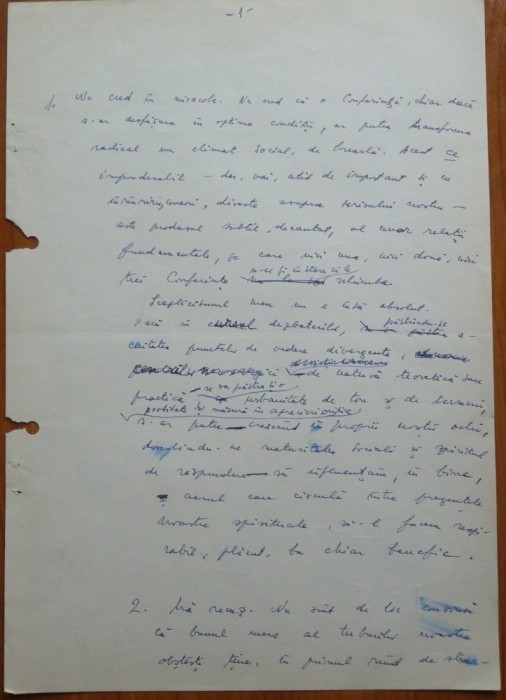 - 1 -
1. Nu cred în miracole. Nu cred că o Conferință, chiar dacă
s-ar desfășura în optime condiții, ar putea transforma
radical un climat social, de breaslă. Acest ce
imponderabil — dar, vai, atît de important și cu
înrîuriri, uneori, directe asupra scrisului nostru —
este produsul subtil, decantat, al unor relații
fundamentale, pe care nici una, nici două, nici
trei Conferințe n-ar fi în stare să le schimba
Scepticismul meu nu e însă absolut.
Dacă în cursul dezbaterilor, păstrîndu-se a-
cuitatea punctelor de vedere divergente,
de natură teoretică sau
practică s-ar păstra și o urbanitate de ton și de termeni,
probitate și măsură în aprecieri critice
s-ar putea — crescînd în propriii noștri ochi,
dovedindu-ne maturitatea socială și spiritul
de răspundere — să influențăm, în bine,
aerul care circulă între
noastre spirituale, să-l facem respi-
rabil, plăcut, ba chiar benefic.
2. Mă recuz. Nu sînt de loc convinsă
că bunul mers al treburilor noastre
obștești ține, în primul rînd, de struc-